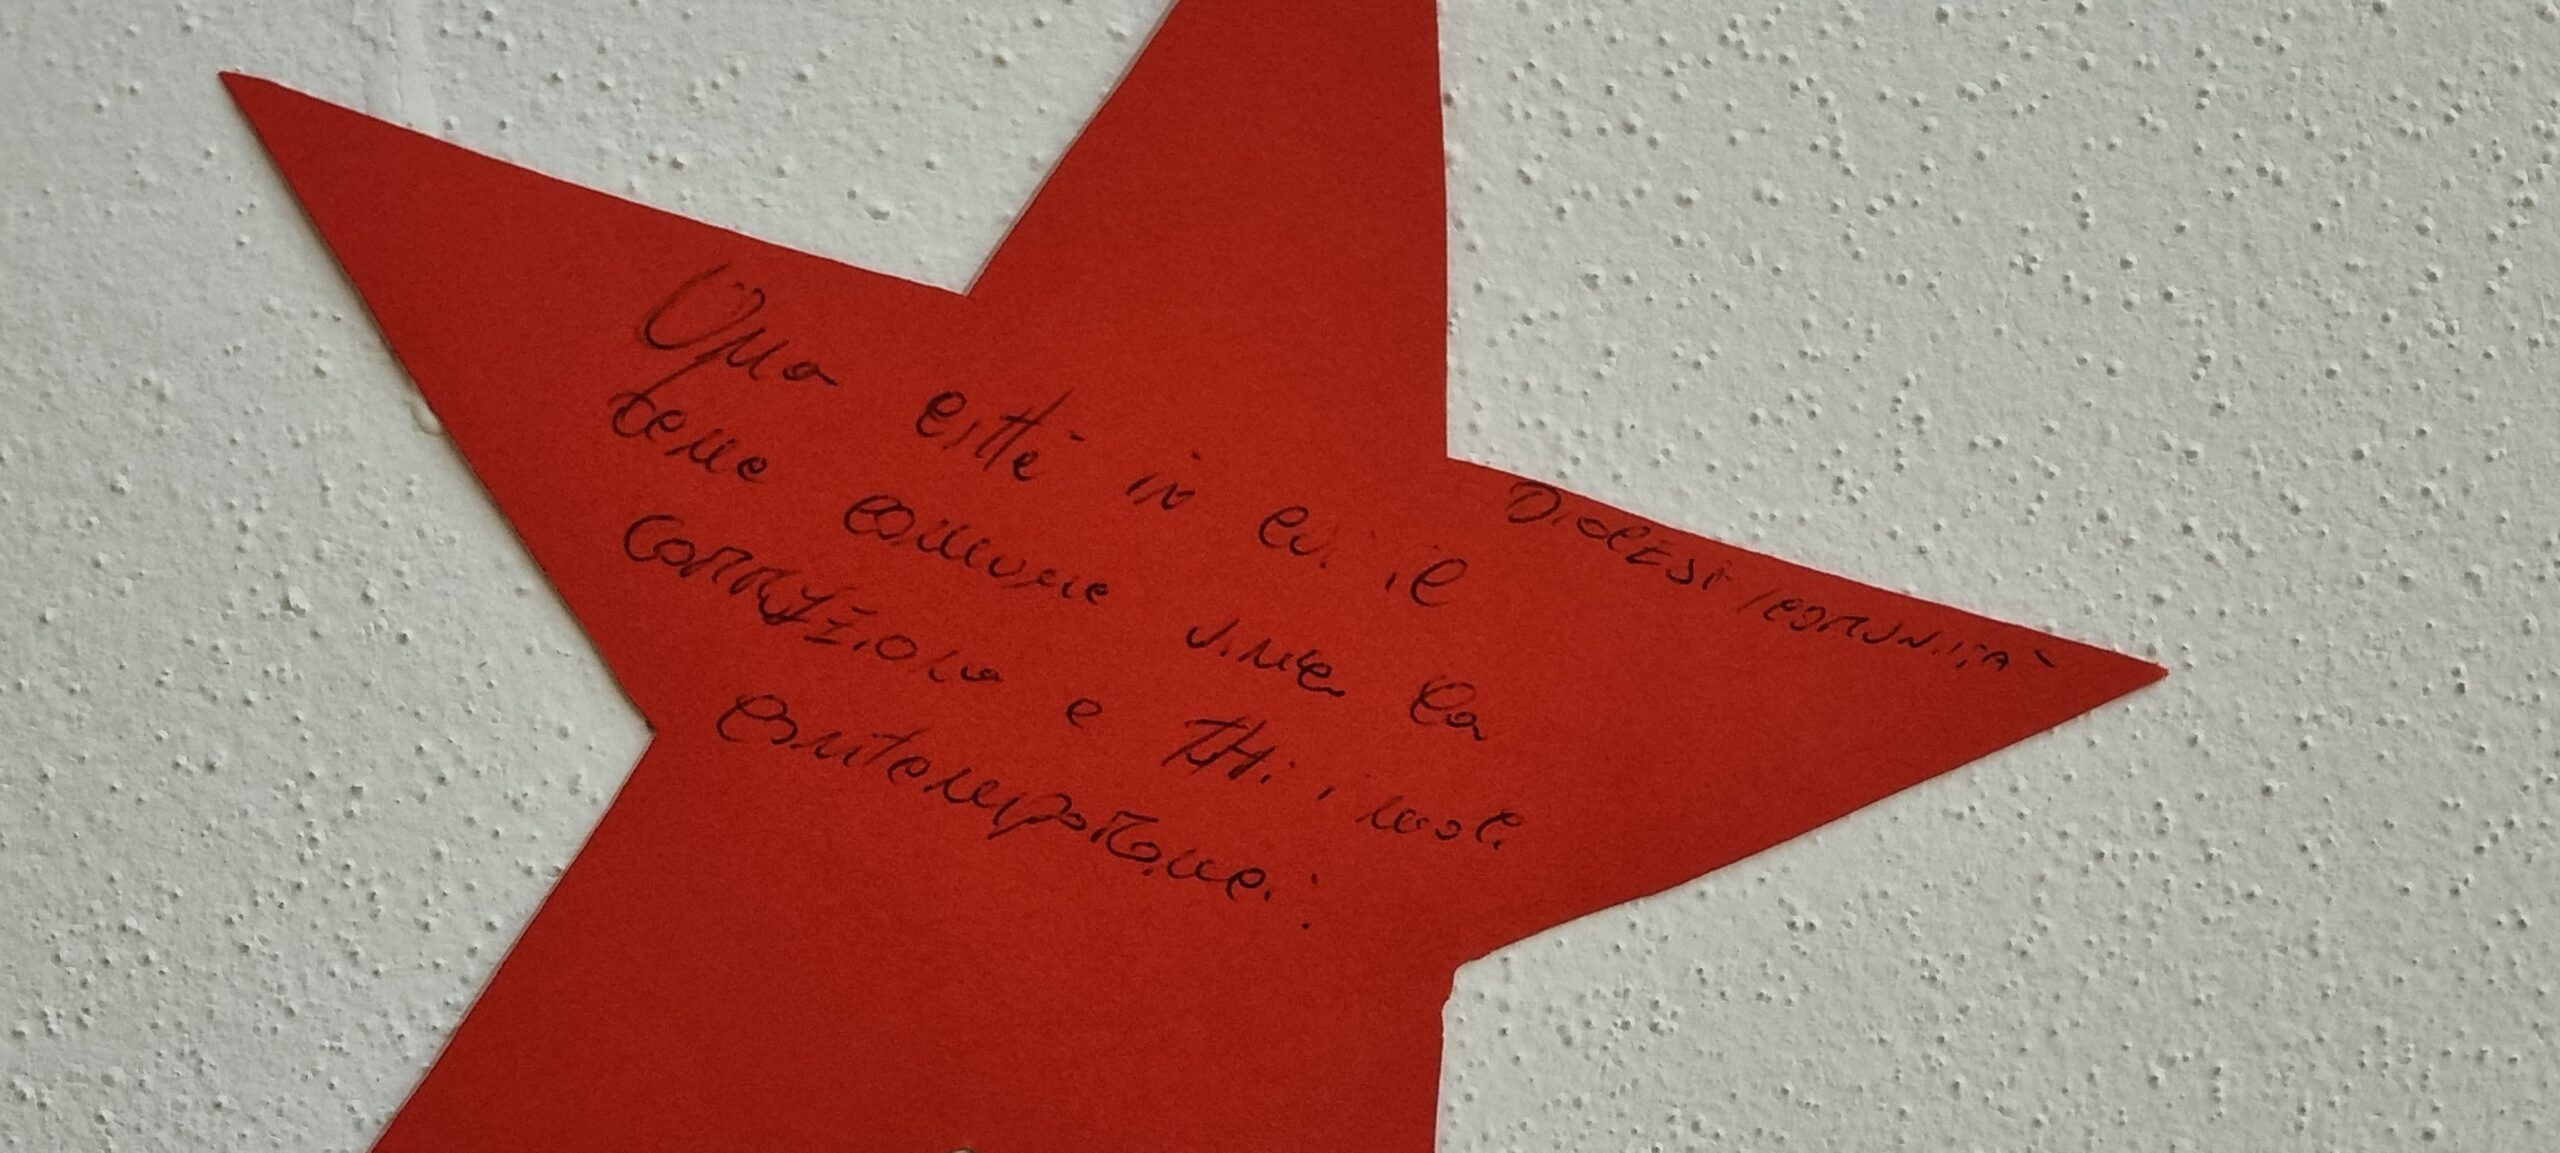 Una città in cui il
bene comune vince la
corruzione e tutti i mali
contemporanei.
DIOCESI / COMUNITÀ